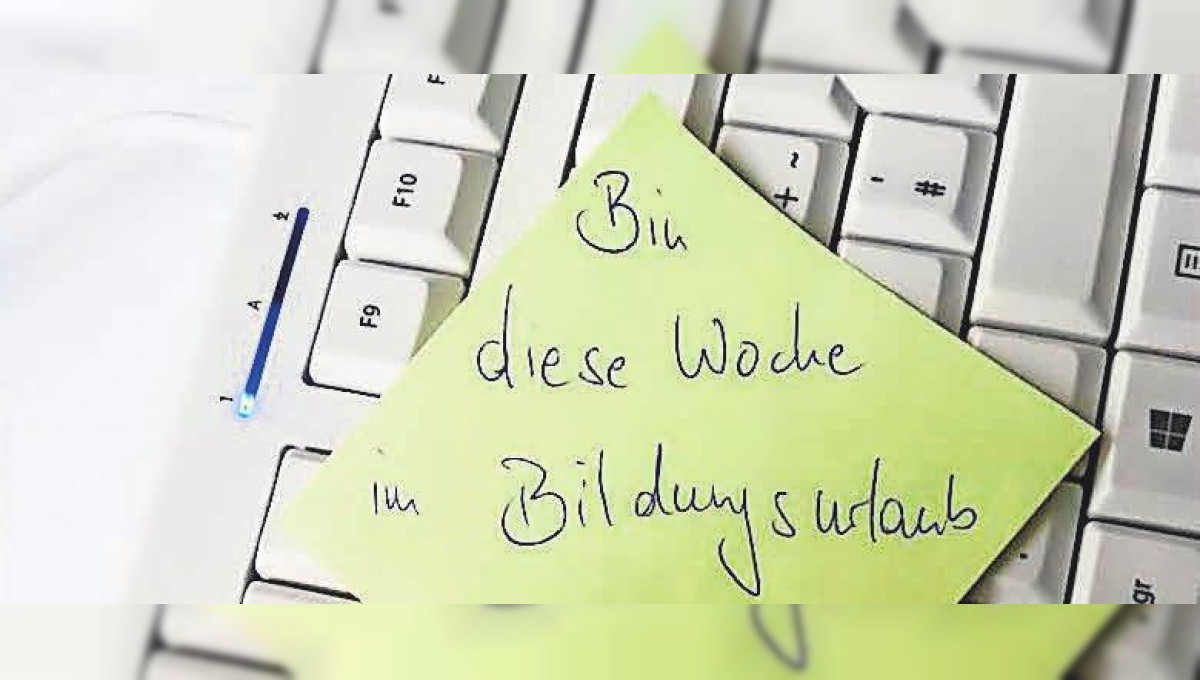 Bin
diese Woche
im Bildungsurlaub
F10
F9
2
A
1
+ ~
' #
gr